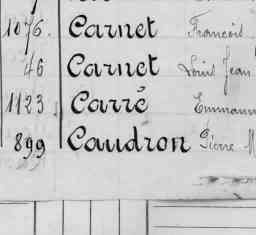 1076. Carnet François
46 Carnet Louis Jean
1123 Carré Emmanu
899 Caudron Pierre M